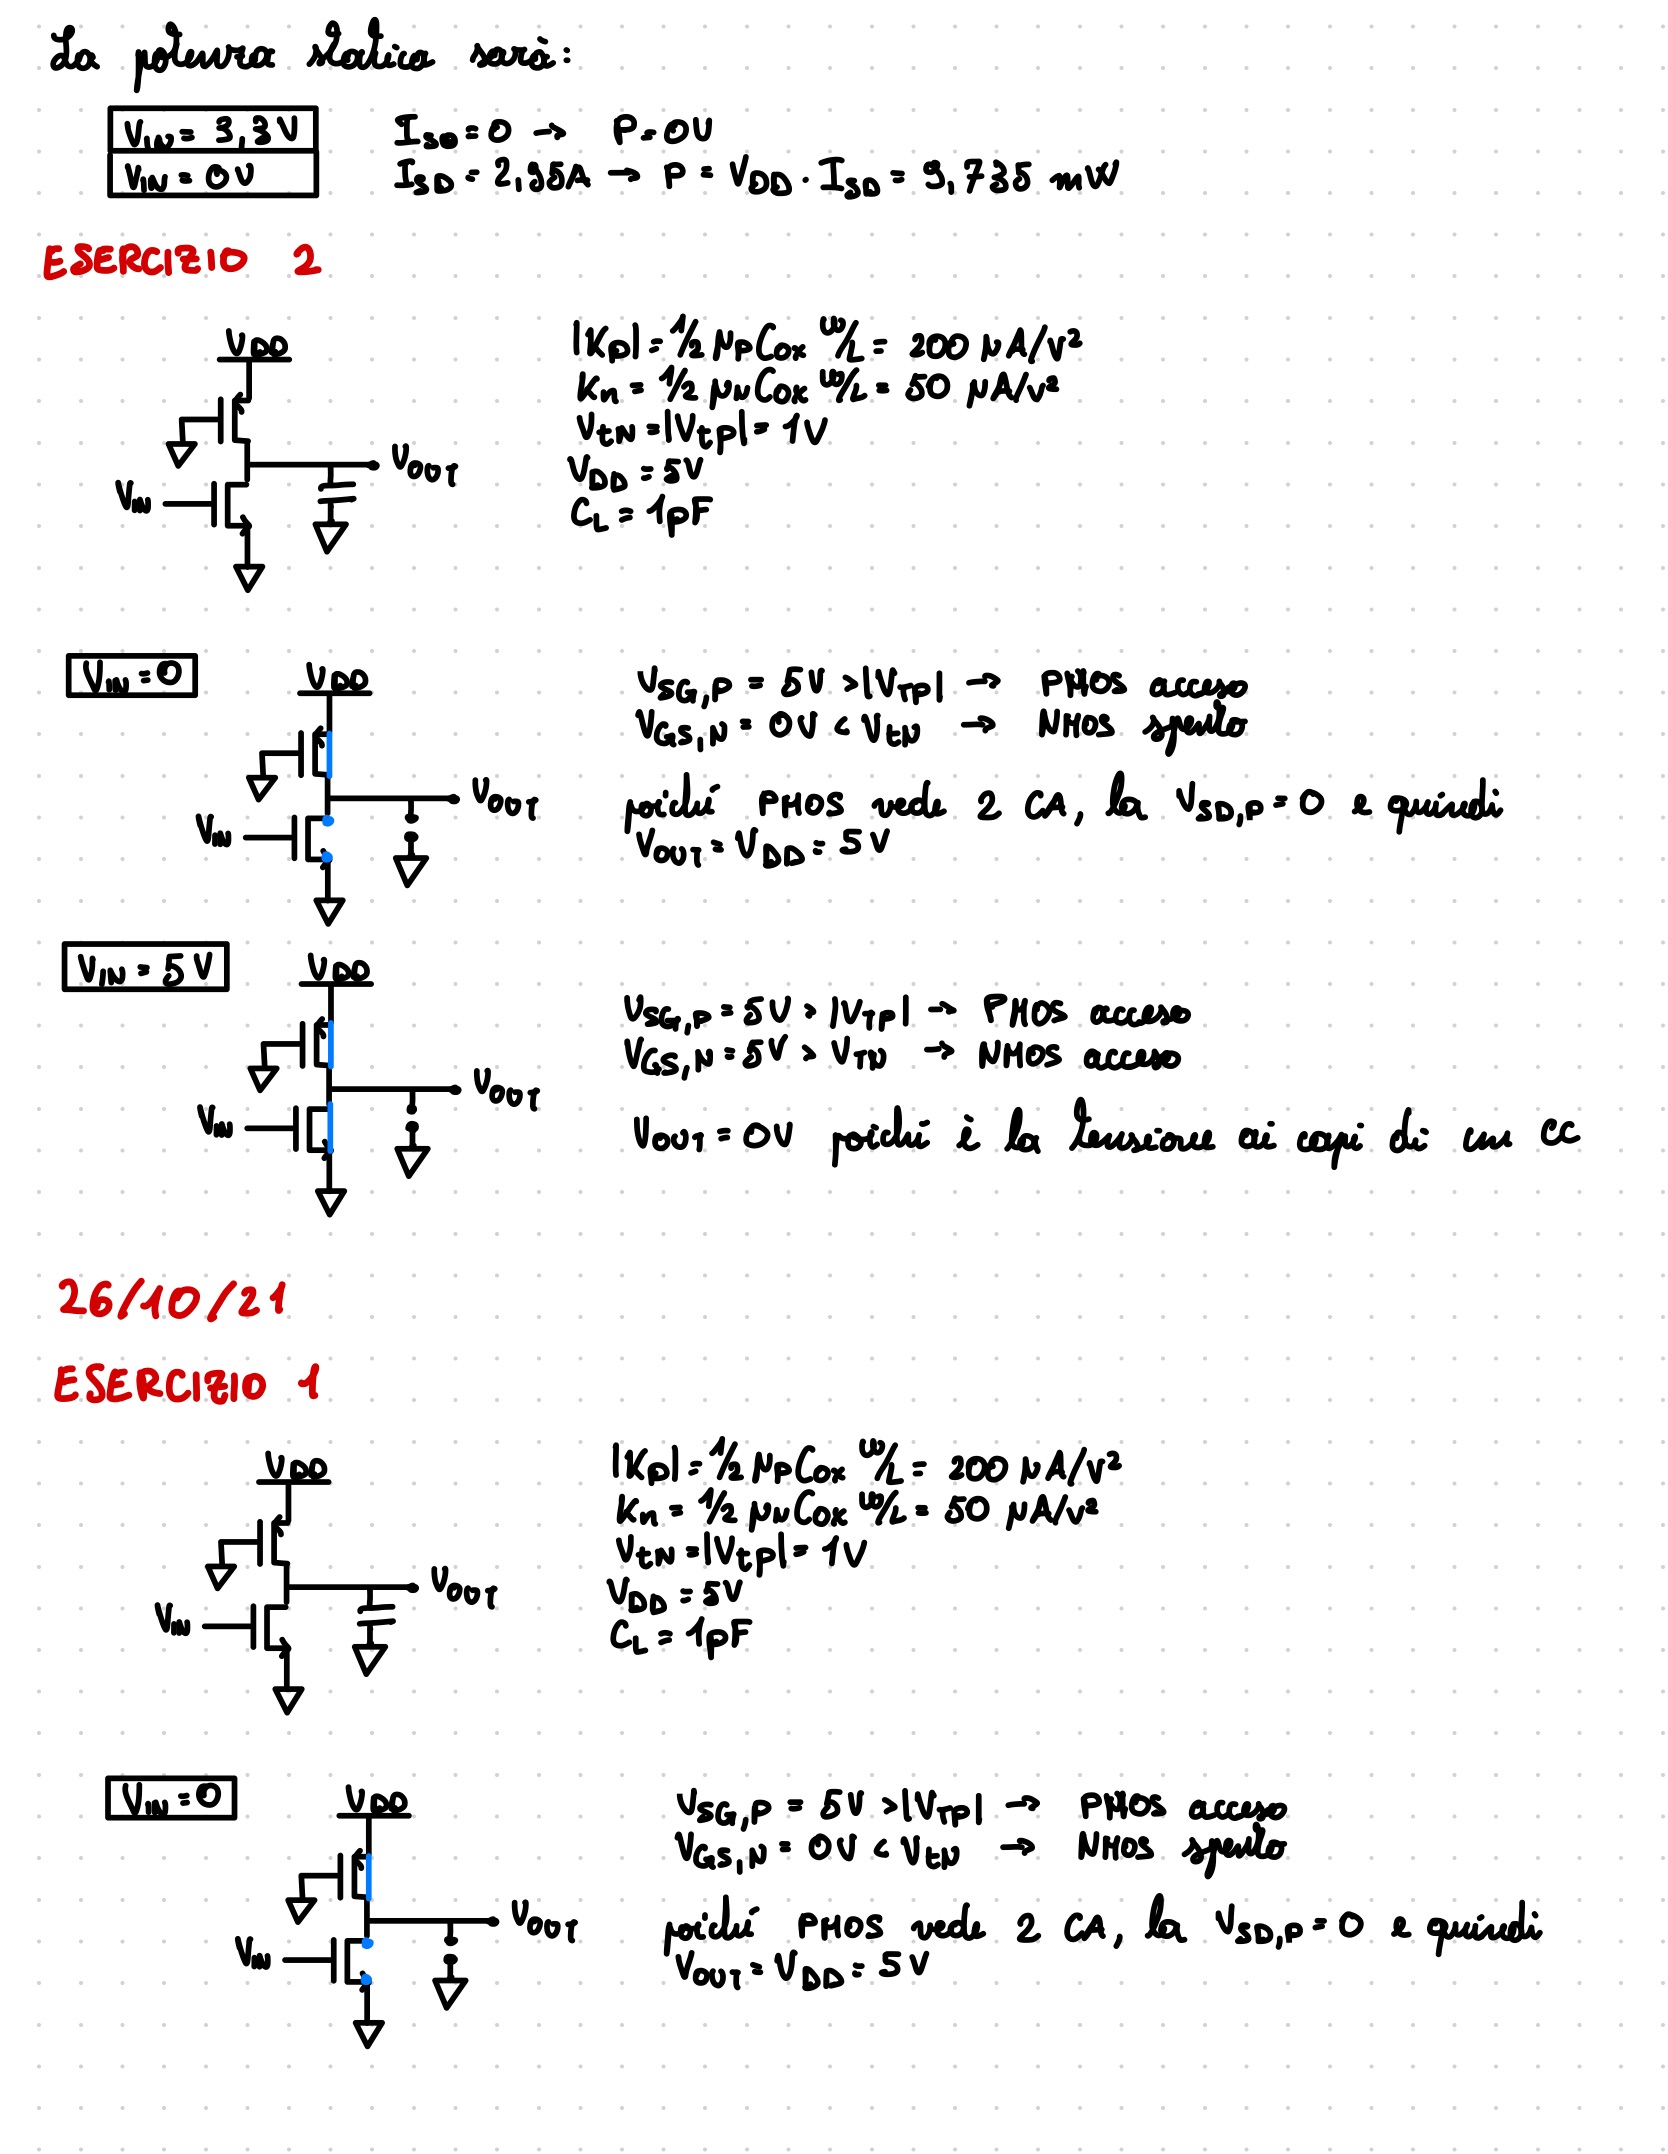 La potenza statica sarà:
V_IN = 3,3V I_SD = 0 → P = 0V
V_IN = 0V I_SD = 2,95A → P = V_DD · I_SD = 9,735 mW
ESERCIZIO 2
V_DD
|Kp| = 1/2 μp Cox W/L = 200 μA/V²
Kn = 1/2 μN Cox W/L = 50 μA/V²
VtN = |Vtp| = 1V
V_OUT
V_DD = 5V
V_IN
C_L = 1pF
V_IN = 0
V_DD
V_SG,P = 5V > |V_TP| → PMOS acceso
V_GS,N = 0V < VtN → NMOS spento
V_OUT
poiché PMOS vede 2 CA, la V_SD,P = 0 e quindi
V_IN
V_OUT = V_DD = 5V
V_IN = 5V
V_DD
V_SG,P = 5V > |V_TP| → PMOS acceso
V_GS,N = 5V > V_TN → NMOS acceso
V_OUT
V_IN
V_OUT = 0V poiché è la tensione ai capi di un CC
26/10/21
ESERCIZIO 1
V_DD
|Kp| = 1/2 μp Cox W/L = 200 μA/V²
Kn = 1/2 μN Cox W/L = 50 μA/V²
VtN = |Vtp| = 1V
V_OUT
V_DD = 5V
V_IN
C_L = 1pF
V_IN = 0
V_DD
V_SG,P = 5V > |V_TP| → PMOS acceso
V_GS,N = 0V < VtN → NMOS spento
V_OUT
poiché PMOS vede 2 CA, la V_SD,P = 0 e quindi
V_IN
V_OUT = V_DD = 5V